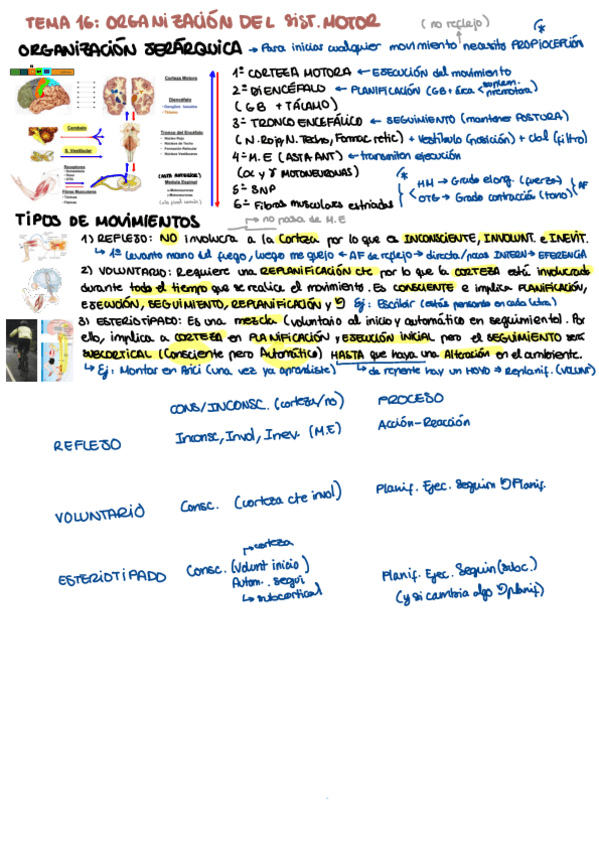 TEMA 16: ORGANIZACIÓN DEL SIST. MOTOR (no reflejo)
ORGANIZACIÓN JERÁRQUICA → Para iniciar cualquier movimiento necesito PROPIOCEPCIÓN *
1º CORTEZA MOTORA ← EJECUCIÓN del movimiento
2º DIENCÉFALO ← PLANIFICACIÓN (GB + área premotora)
(GB + TÁLAMO)
3º TRONCO ENCEFÁLICO ← SEGUIMIENTO (mantener POSTURA)
(N. Rojo, N. Techo, Formac retic) + Vestíbulo (posición) + Cbl (filtro)
4º M.E (ASTA ANT) ← transmiten ejecución
(α y γ MOTONEURONAS)
5º SNP
6º Fibras musculares estriadas
* HM → Grado elong. (fuerza)
OTG → Grado contracción (tono)
AF
Corteza Motora
Diencéfalo
- Ganglios basales
- Tálamo
Cerebelo
S. Vestibular
Tronco del Encéfalo
- Núcleo Rojo
- Núcleo de Techo
- Formación Reticular
- Núcleos Vestibulares
Receptores
(ASTA ANTERIOR)
Medula Espinal
Fibras Musculares
TIPOS DE MOVIMIENTOS → no pasa de M.E
1) REFLEJO: NO involucra a la Corteza por lo que es INCONSCIENTE, INVOLUNT. e INEVIT.
↳ 1º Levanto mano del fuego, luego me quejo ← AF de reflejo → directa/pocas INTERN → EFERENCIA
2) VOLUNTARIO: Requiere una REPLANIFICACIÓN cte por lo que la CORTEZA está involucrada
durante todo el tiempo que se realice el movimiento. Es CONSCIENTE e implica PLANIFICACIÓN,
EJECUCIÓN, SEGUIMIENTO, REPLANIFICACIÓN y ↺ Ej: Escribir (estás pensando en cada letra)
3) ESTERIOTIPADO: Es una mezcla (voluntario al inicio y automático en seguimiento). Por
ello, implica a CORTEZA en PLANIFICACIÓN y EJECUCIÓN INICIAL pero el SEGUIMIENTO será
SUBCORTICAL (Consciente pero Automático) HASTA que haya una Alteración en el ambiente.
↳ Ej: Montar en Bici (una vez ya aprendiste) ↳ de repente hay un HOYO ⇒ Replanif. (VOLUNT)
CONS/INCONSC. (corteza/no) PROCESO
REFLEJO Inconsc, Invol, Inev. (M.E) Acción-Reacción
VOLUNTARIO Consc. (corteza cte invol) Planif. Ejec. Seguim ↺ Planif.
→ corteza
ESTERIOTIPADO Consc. (Volunt inicio) Planif. Ejec. Seguim (subc.)
Autom. segui (y si cambia algo ↺ planif)
↳ subcortical